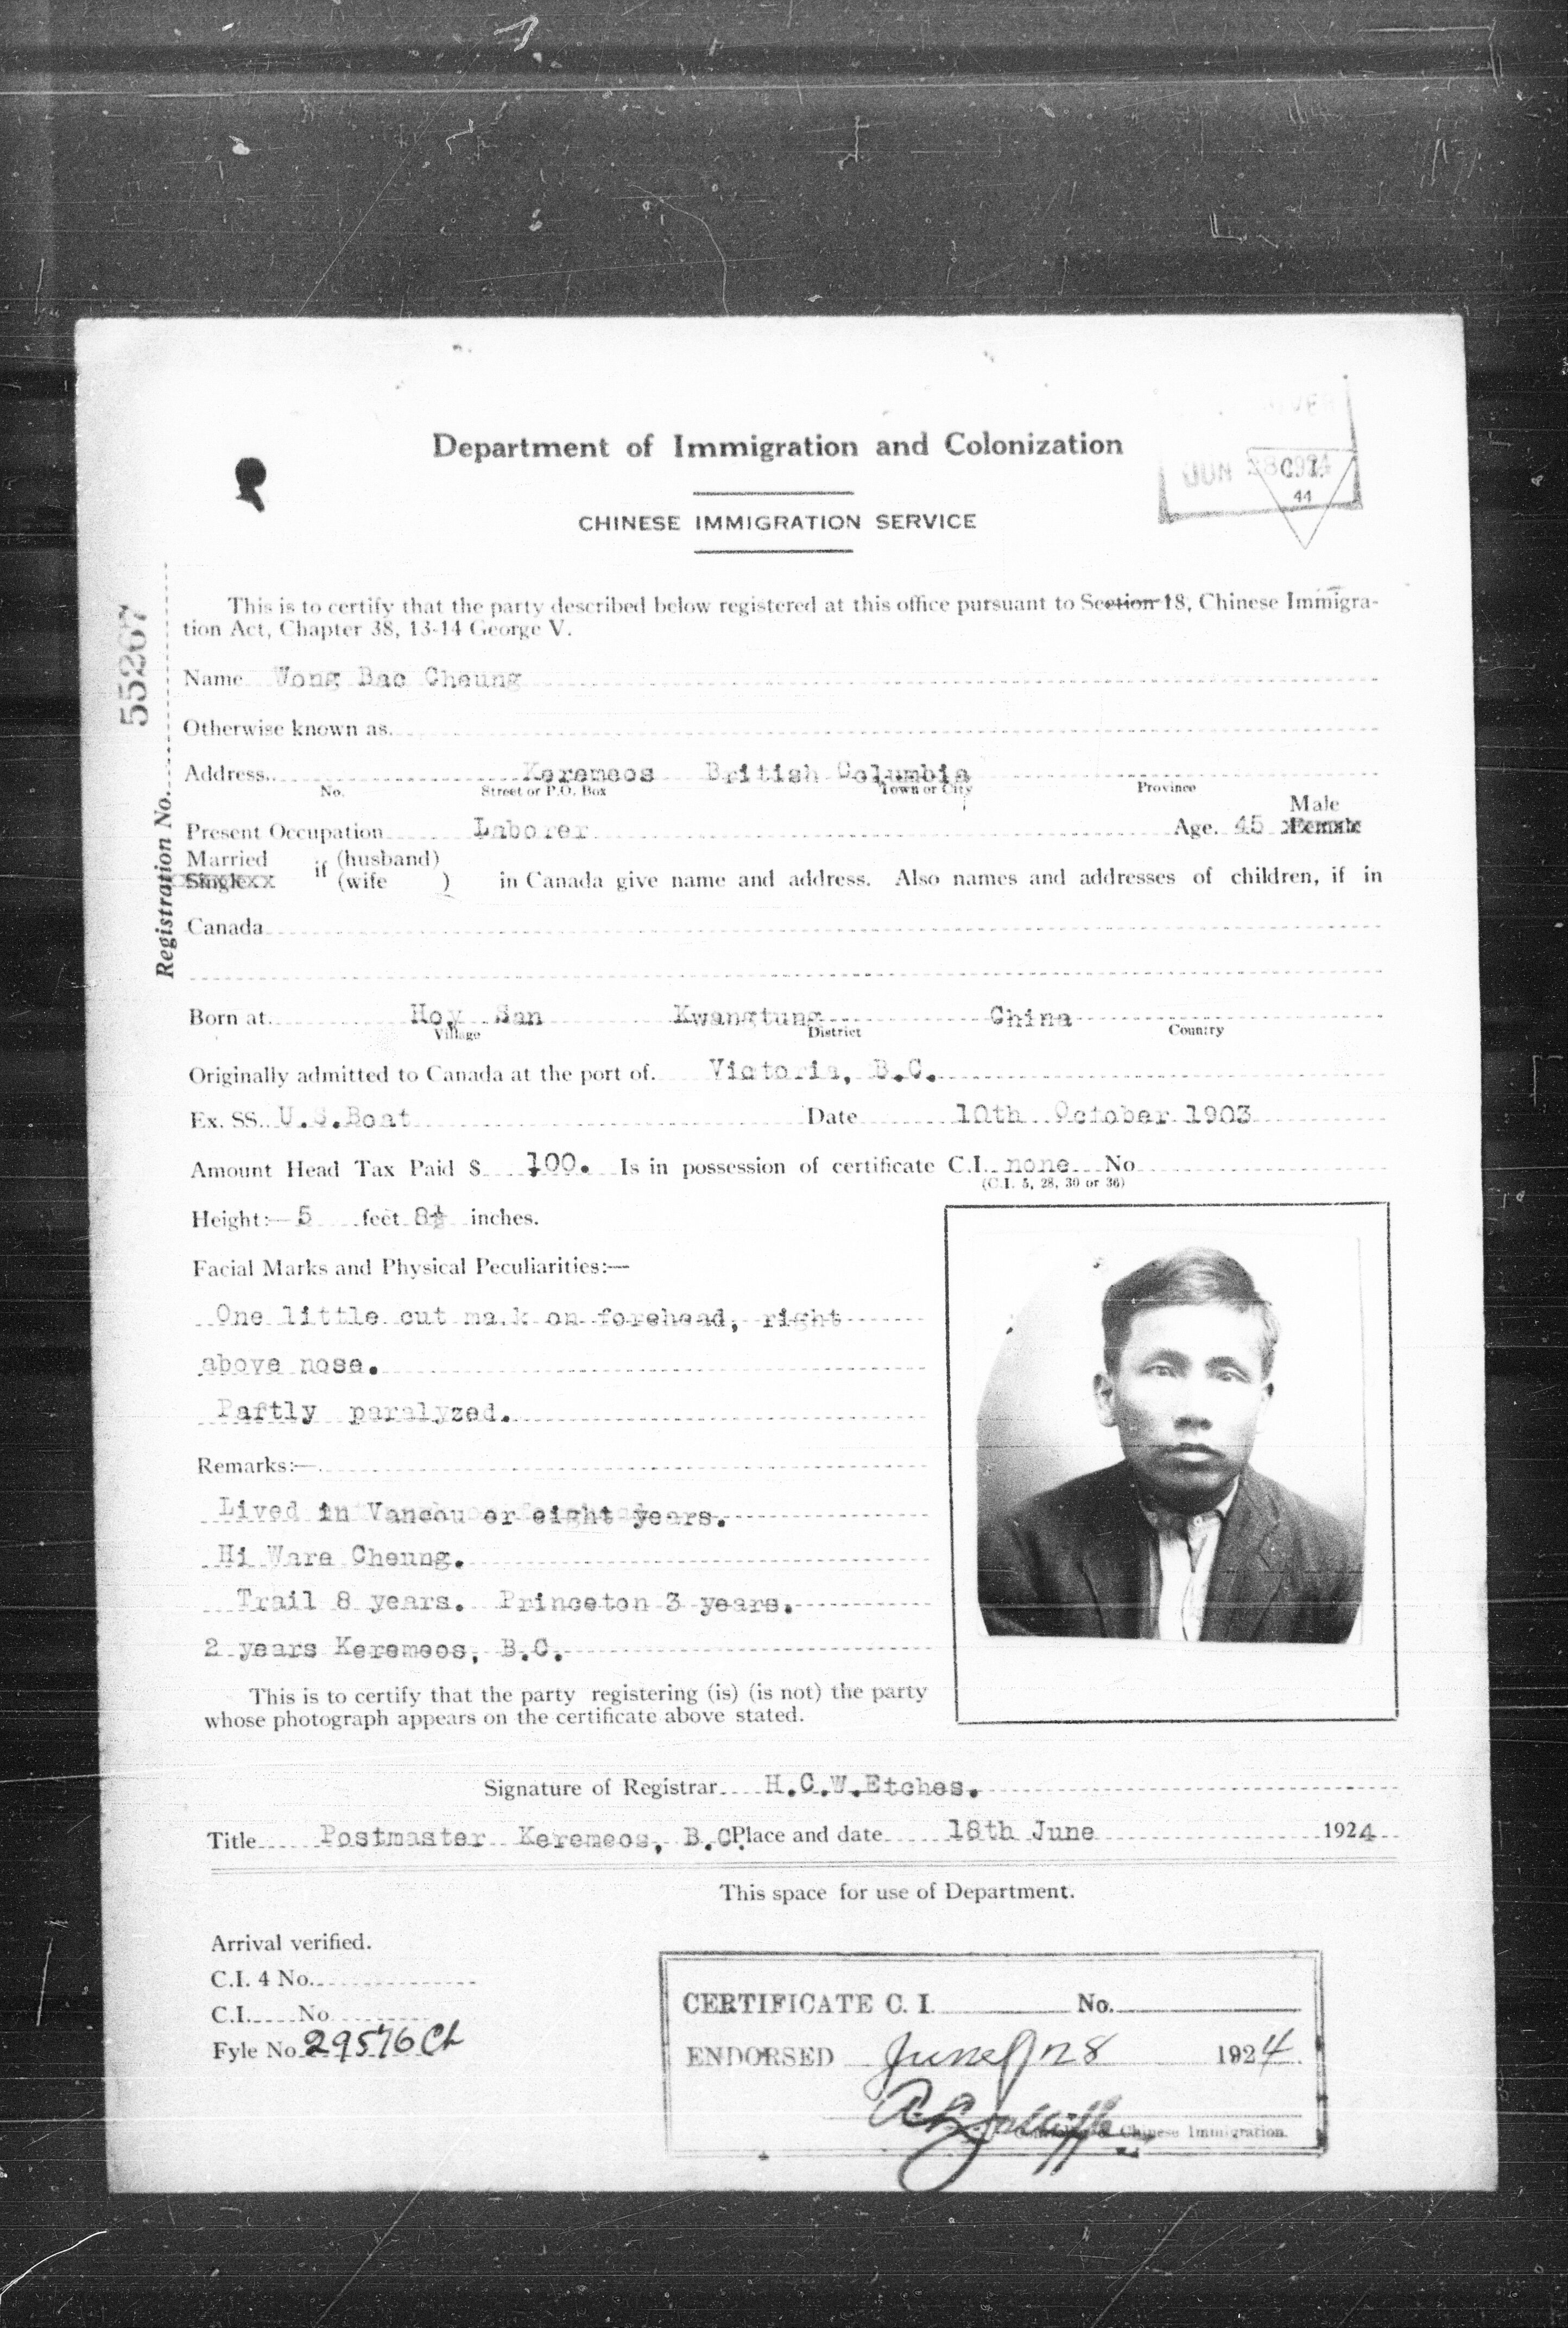 Department of Immigration and Colonization
CHINESE IMMIGRATION SERVICE
JUN 28 1924
C.I.
44
This is to certify that the party described below registered at this office pursuant to Section 18, Chinese Immigra-
tion Act, Chapter 38, 13-14 George V.
Registration No. 55267
Name Wong Bac Cheung
Otherwise known as
Address Keremeos British Columbia
No. Street or P.O. Box Town or City Province
Male
Present Occupation Laborer Age 45 Female
Married if (husband)
Single xx (wife ) in Canada give name and address. Also names and addresses of children, if in
Canada
Born at Hoy San Kwangtung China
Village District Country
Originally admitted to Canada at the port of Victoria, B.C.
Ex. SS. U.S.Boat Date 10th October 1903
Amount Head Tax Paid $ 100. Is in possession of certificate C.I. none No
(C.I. 5, 28, 30 or 36)
Height:— 5 feet 8½ inches.
Facial Marks and Physical Peculiarities:—
One little cut ma.k on forehead, right
above nose.
Partly paralyzed.
Remarks:—
Lived in Vancou er eight years.
Hi Ware Cheung.
Trail 8 years. Princeton 3 years.
2 years Keremeos, B.C.
This is to certify that the party registering (is) (is not) the party
whose photograph appears on the certificate above stated.
Signature of Registrar H.C.W.Etches.
Title Postmaster Keremeos, B.C. Place and date 18th June 1924
This space for use of Department.
Arrival verified.
C.I. 4 No.
C.I. No
Fyle No 29576 Ch
CERTIFICATE C. I. No.
ENDORSED June 28 1924
Chinese Immigration.